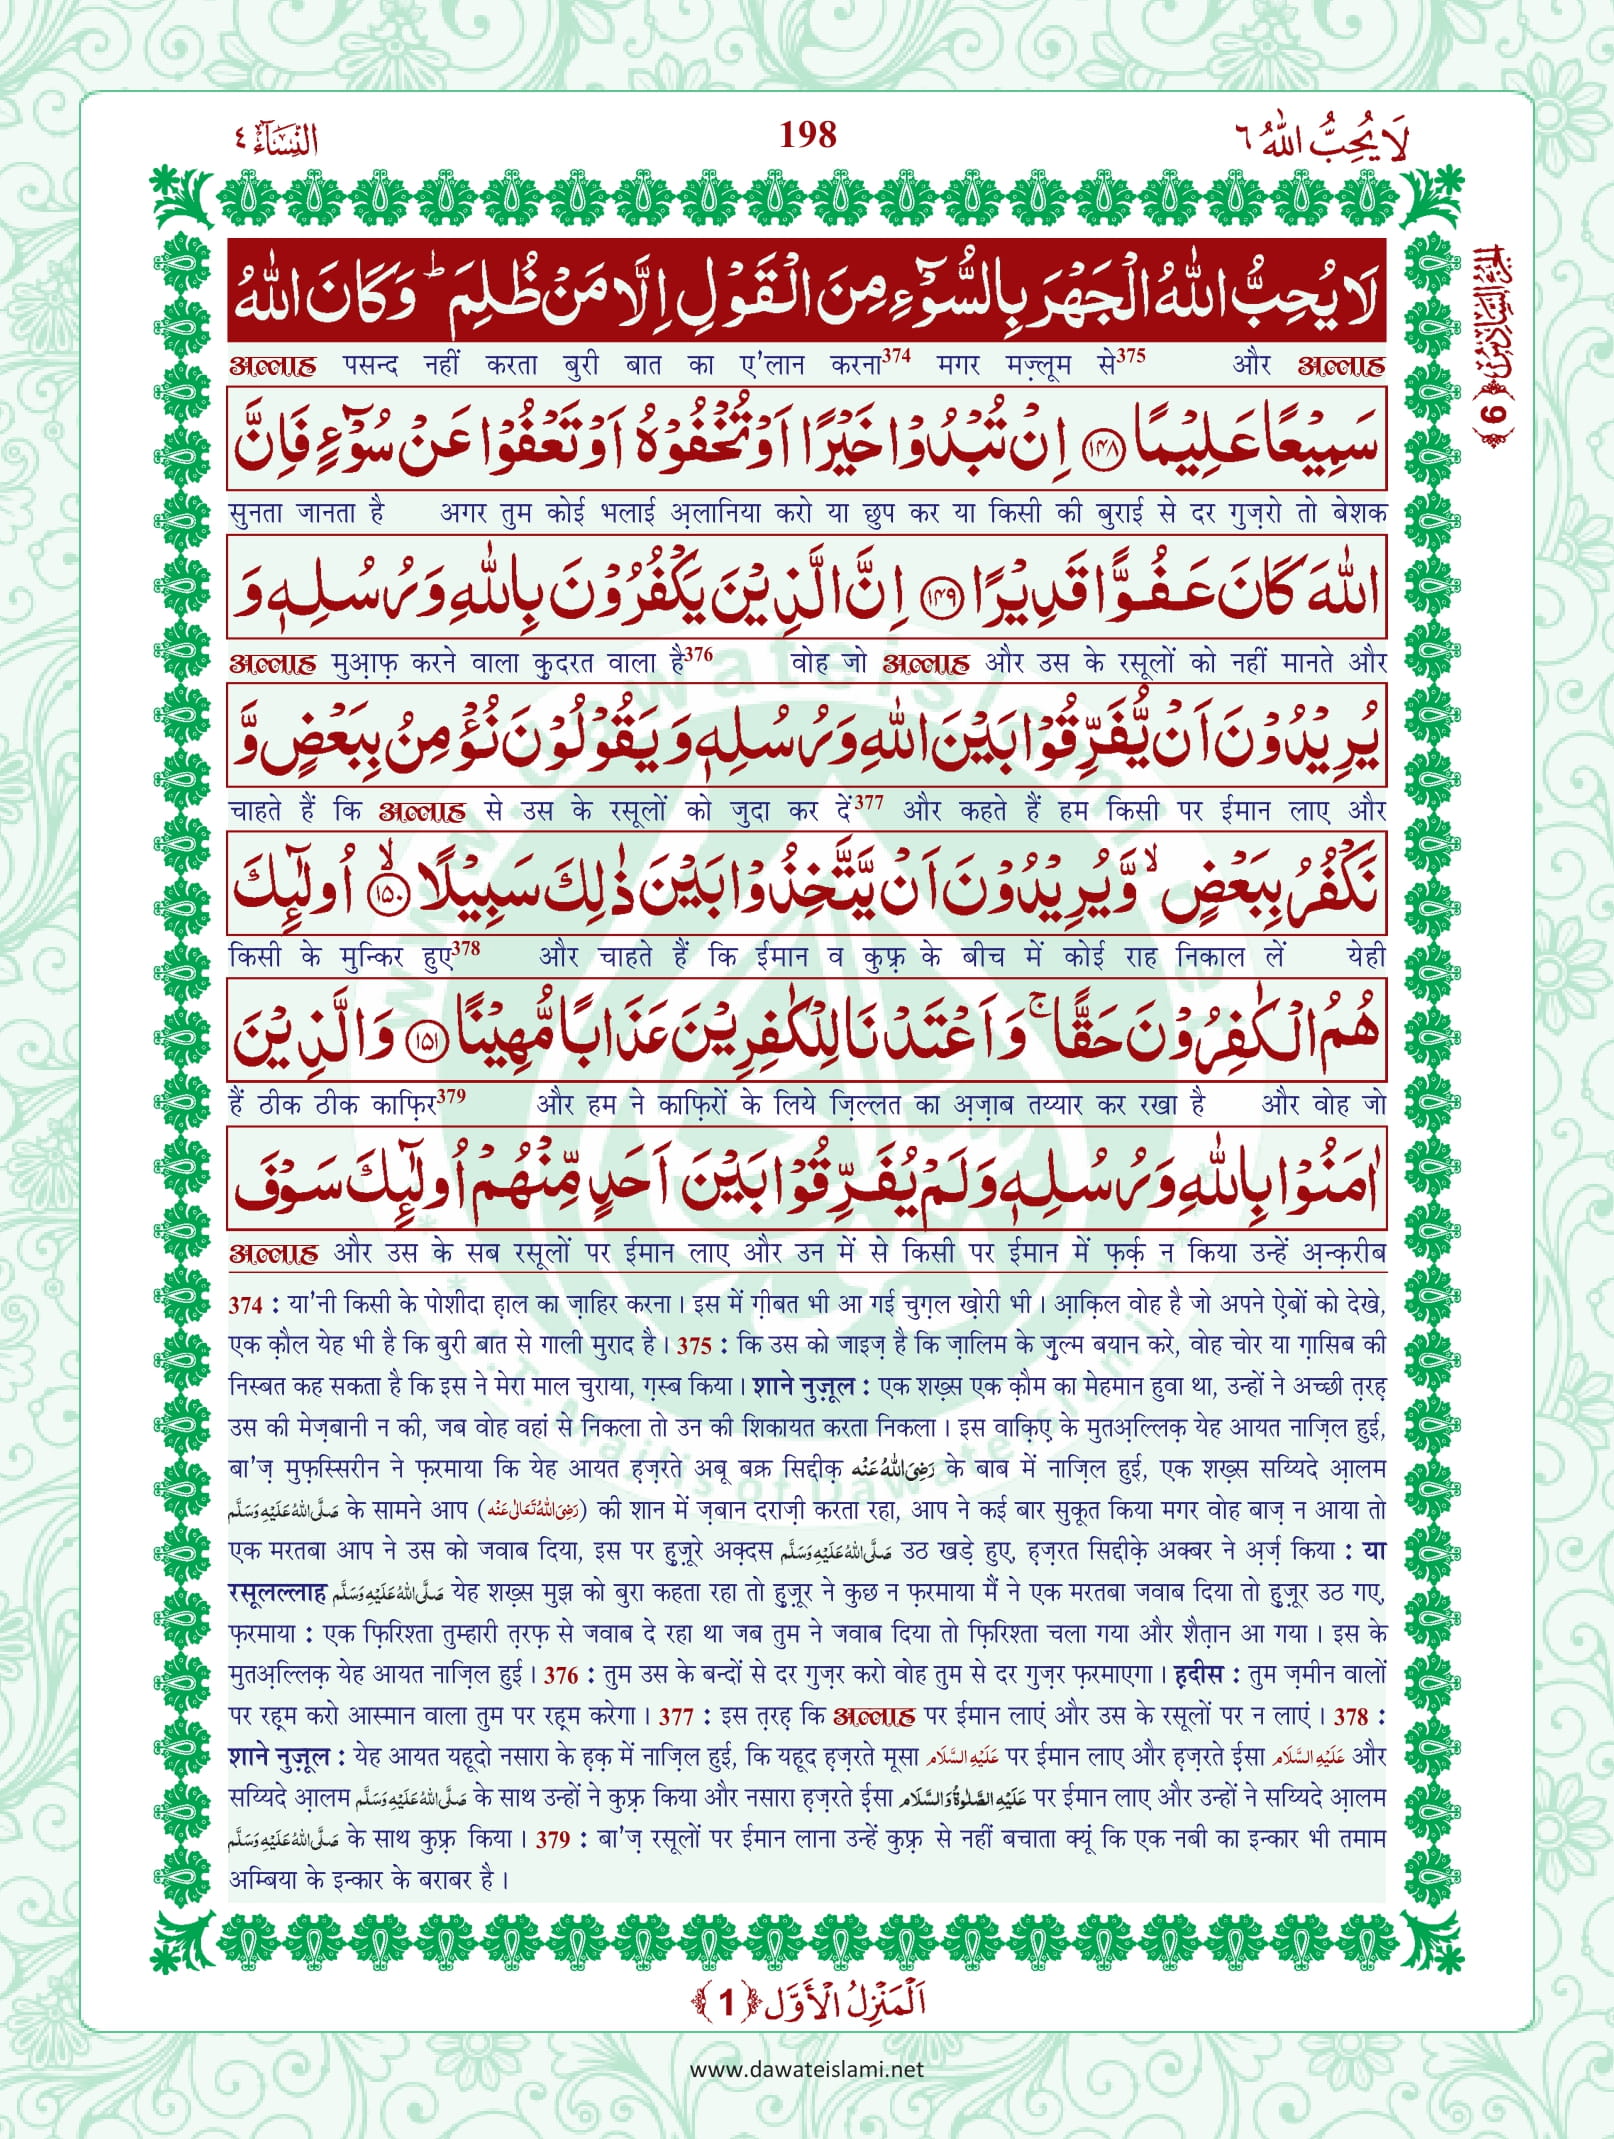 لَا یُحِبُّ اللّٰهُ ٦
198
النِّسَآء ٤
اَلْجُزْءُ السَّادِسُ ﴿6﴾
لَا یُحِبُّ اللّٰهُ الْجَهْرَ بِالسُّوْٓءِ مِنَ الْقَوْلِ اِلَّا مَنْ ظُلِمَؕ وَ كَانَ اللّٰهُ
अल्लाह पसन्द नहीं करता बुरी बात का ए'लान करना374 मगर मज़्लूम से375 और अल्लाह
سَمِیْعًا عَلِیْمًا ﴿۱۴۸﴾ اِنْ تُبْدُوْا خَیْرًا اَوْ تُخْفُوْهُ اَوْ تَعْفُوْا عَنْ سُوْٓءٍ فَاِنَّ
सुनता जानता है अगर तुम कोई भलाई अ़लानिया करो या छुप कर या किसी की बुराई से दर गुज़रो तो बेशक
اللّٰهَ كَانَ عَفُوًّا قَدِیْرًا ﴿۱۴۹﴾ اِنَّ الَّذِیْنَ یَكْفُرُوْنَ بِاللّٰهِ وَ رُسُلِهٖ وَ
अल्लाह मुआ़फ़ करने वाला कु़दरत वाला है376 वोह जो अल्लाह और उस के रसूलों को नहीं मानते और
یُرِیْدُوْنَ اَنْ یُّفَرِّقُوْا بَیْنَ اللّٰهِ وَ رُسُلِهٖ وَ یَقُوْلُوْنَ نُؤْمِنُ بِبَعْضٍ وَّ
चाहते हैं कि अल्लाह से उस के रसूलों को जुदा कर दें377 और कहते हैं हम किसी पर ईमान लाए और
نَكْفُرُ بِبَعْضٍۙ وَّ یُرِیْدُوْنَ اَنْ یَّتَّخِذُوْا بَیْنَ ذٰلِكَ سَبِیْلًاۙ ﴿۱۵۰﴾ اُولٰٓىٕكَ
किसी के मुन्किर हुए378 और चाहते हैं कि ईमान व कुफ़्र के बीच में कोई राह निकाल लें येही
هُمُ الْكٰفِرُوْنَ حَقًّاۚ وَ اَعْتَدْنَا لِلْكٰفِرِیْنَ عَذَابًا مُّهِیْنًا ﴿۱۵۱﴾ وَ الَّذِیْنَ
हैं ठीक ठीक काफ़िर379 और हम ने काफ़िरों के लिये ज़िल्लत का अ़ज़ाब तय्यार कर रखा है और वोह जो
اٰمَنُوْا بِاللّٰهِ وَ رُسُلِهٖ وَ لَمْ یُفَرِّقُوْا بَیْنَ اَحَدٍ مِّنْهُمْ اُولٰٓىٕكَ سَوْفَ
अल्लाह और उस के सब रसूलों पर ईमान लाए और उन में से किसी पर ईमान में फ़र्क़ न किया उन्हें अ़न्क़रीब
374 : या'नी किसी के पोशीदा ह़ाल का ज़ाहिर करना। इस में ग़ीबत भी आ गई चुग़ल ख़ोरी भी। आ़क़िल वोह है जो अपने ऐ़बों को देखे,
एक क़ौल येह भी है कि बुरी बात से गाली मुराद है। 375 : कि उस को जाइज़ है कि ज़ालिम के ज़ुल्म बयान करे, वोह चोर या ग़ासिब की
निस्बत कह सकता है कि इस ने मेरा माल चुराया, ग़स्ब किया। शाने नुज़ूल : एक शख़्स एक क़ौम का मेहमान हुवा था, उन्हों ने अच्छी त़रह़
उस की मेज़बानी न की, जब वोह वहां से निकला तो उन की शिकायत करता निकला। इस वाक़िए के मुतअ़ल्लिक़ येह आयत नाज़िल हुई,
बा'ज़ मुफ़स्सिरीन ने फ़रमाया कि येह आयत ह़ज़रते अबू बक्र सिद्दीक़ رَضِیَ اللّٰهُ عَنْه के बाब में नाज़िल हुई, एक शख़्स सय्यिदे आ़लम
صَلَّی اللّٰهُ عَلَیْهِ وَسَلَّم के सामने आप (رَضِیَ اللّٰهُ تَعَالٰی عَنْه) की शान में ज़बान दराज़ी करता रहा, आप ने कई बार सुकूत किया मगर वोह बाज़ न आया तो
एक मरतबा आप ने उस को जवाब दिया, इस पर हुज़ूरे अक़्दस صَلَّی اللّٰهُ عَلَیْهِ وَسَلَّم उठ खड़े हुए, ह़ज़रत सिद्दीके़ अक्बर ने अ़र्ज़ किया : या
रसूलल्लाह صَلَّی اللّٰهُ عَلَیْهِ وَسَلَّم येह शख़्स मुझ को बुरा कहता रहा तो हुज़ूर ने कुछ न फ़रमाया मैं ने एक मरतबा जवाब दिया तो हुज़ूर उठ गए,
फ़रमाया : एक फ़िरिश्ता तुम्हारी त़रफ़ से जवाब दे रहा था जब तुम ने जवाब दिया तो फ़िरिश्ता चला गया और शैत़ान आ गया। इस के
मुतअ़ल्लिक़ येह आयत नाज़िल हुई। 376 : तुम उस के बन्दों से दर गुज़र करो वोह तुम से दर गुज़र फ़रमाएगा। ह़दीस : तुम ज़मीन वालों
पर रह़म करो आस्मान वाला तुम पर रह़म करेगा। 377 : इस त़रह़ कि अल्लाह पर ईमान लाएं और उस के रसूलों पर न लाएं। 378 :
शाने नुज़ूल : येह आयत यहूदो नसारा के ह़क़ में नाज़िल हुई, कि यहूद ह़ज़रते मूसा عَلَیْهِ السَّلَام पर ईमान लाए और ह़ज़रते ई़सा عَلَیْهِ السَّلَام और
सय्यिदे आ़लम صَلَّی اللّٰهُ عَلَیْهِ وَسَلَّم के साथ उन्हों ने कुफ़्र किया और नसारा ह़ज़रते ई़सा عَلَیْهِ الصَّلٰوةُ وَالسَّلَام पर ईमान लाए और उन्हों ने सय्यिदे आ़लम
صَلَّی اللّٰهُ عَلَیْهِ وَسَلَّم के साथ कुफ़्र किया। 379 : बा'ज़ रसूलों पर ईमान लाना उन्हें कुफ़्र से नहीं बचाता क्यूं कि एक नबी का इन्कार भी तमाम
अम्बिया के इन्कार के बराबर है।
اَلْمَنْزِلُ الْاَوَّل ﴿1﴾
www.dawateislami.net